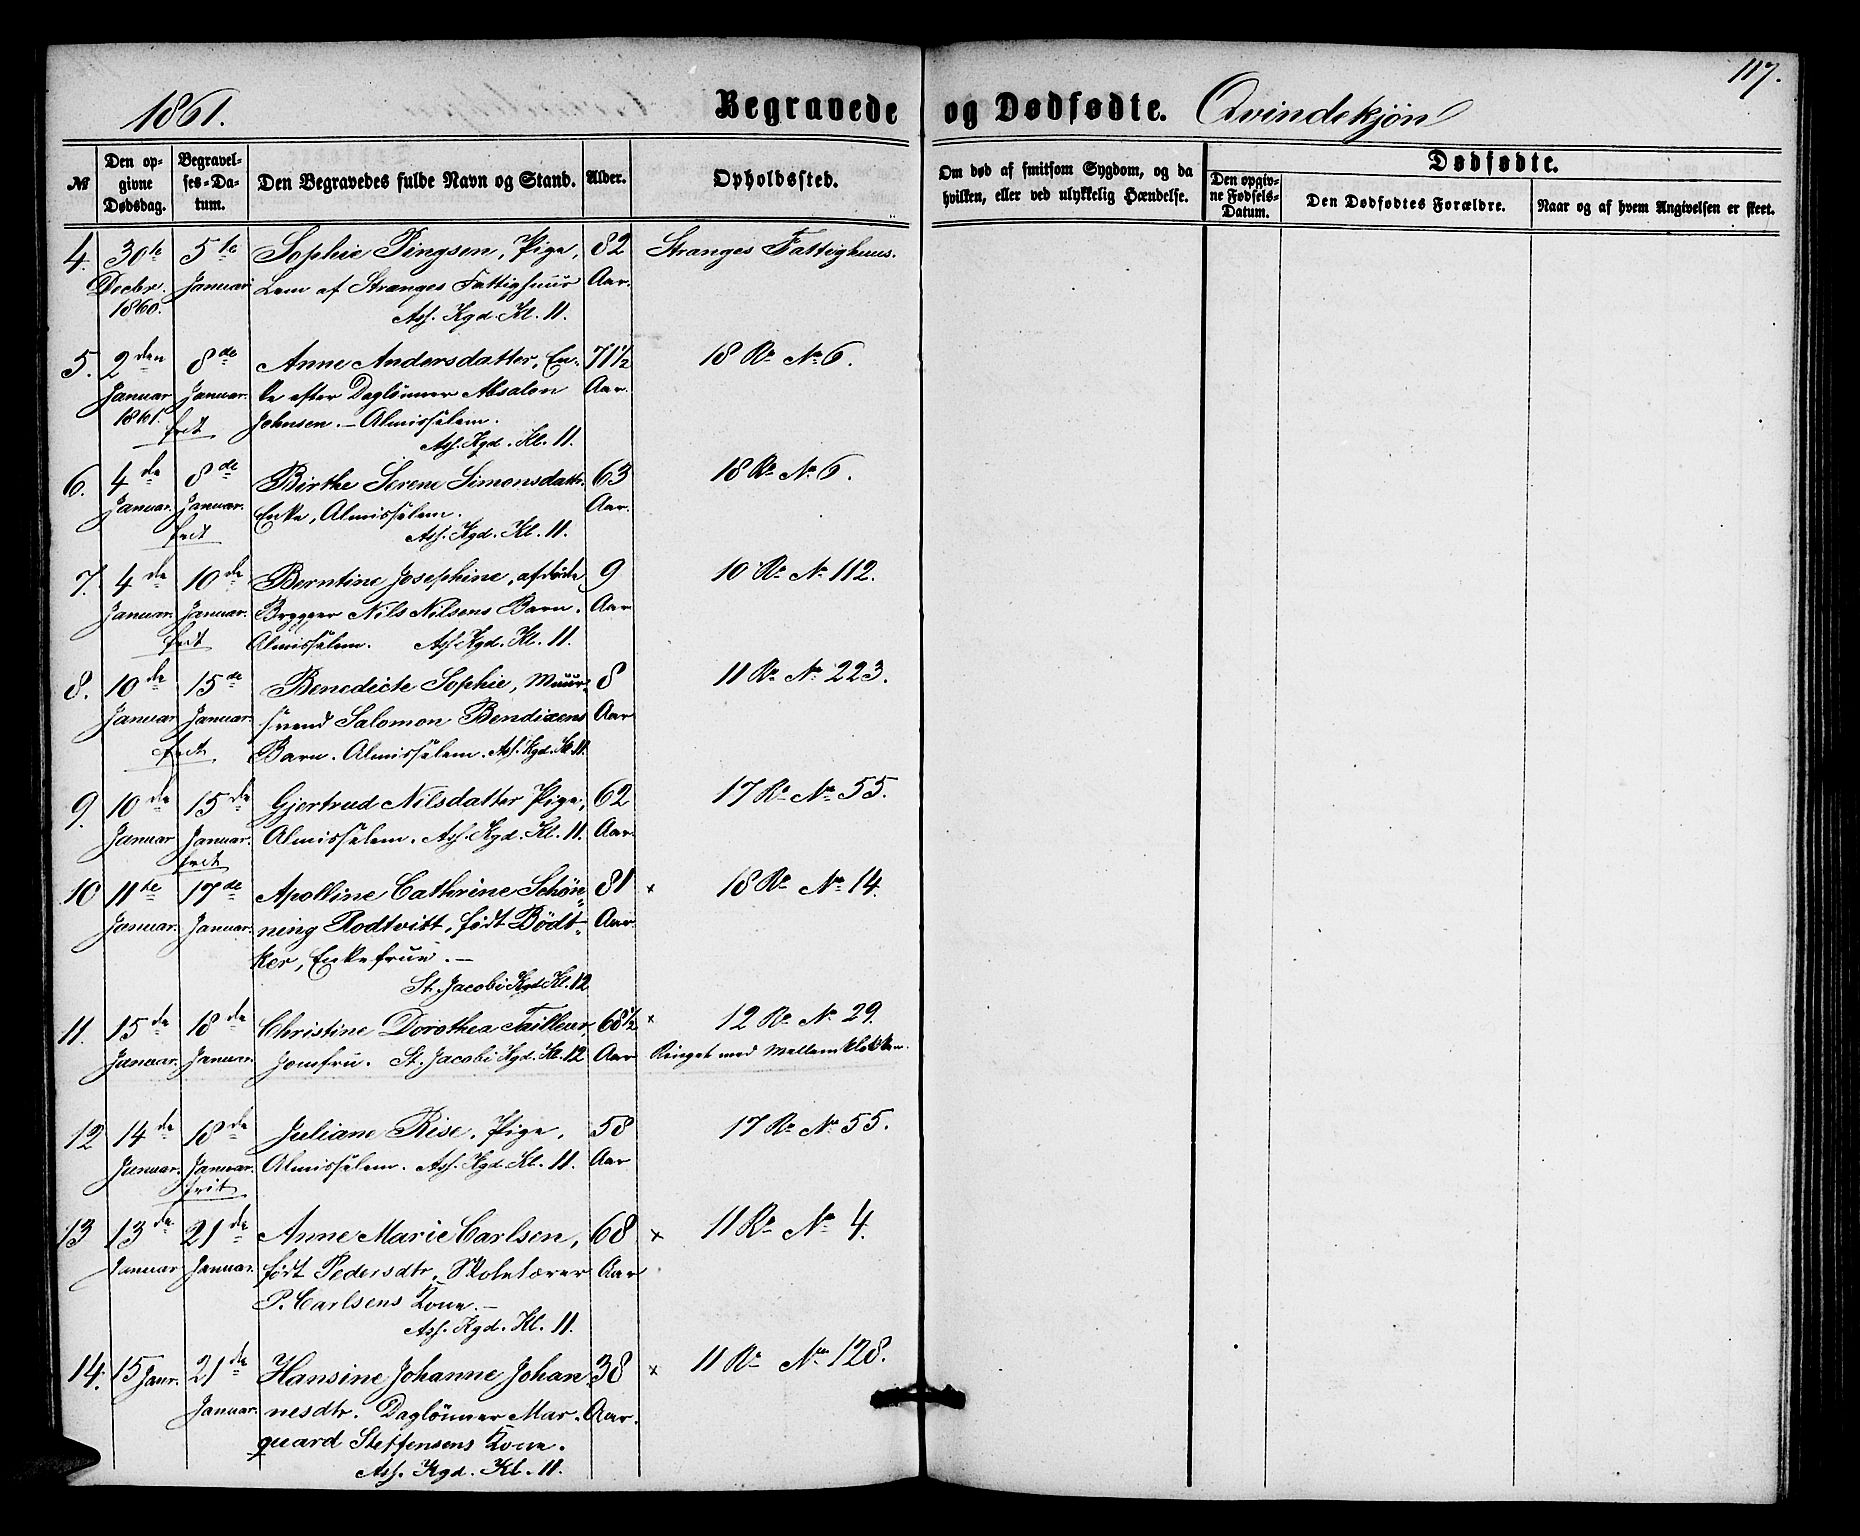 117.
1861. Begravede og Dødfødte. Qvindekjøn
№ Den opgivne Dødsdag. Begravelses-Datum. Den Begravedes fulde Navn og Stand. Alder. Opholdssted. Om død af smitsom Sygdom, og da hvilken, eller ved ulykkelig Hændelse. Dødfødte.
Den opgivne Fødsels-Datum. Den Dødfødtes Forældre. Naar og af hvem Angivelsen er skeet.
4. 30te 5te Sophie Pingsen, Pige, 82 Stranges Fattighuus.
Decbr. Januar Lem af Stranges Fattighuus Aar.
1860. Ass. Kgd. Kl. 11.
5. 2den 8de Anne Andersdatter, En- 71½ 18 R. No 6.
Januar Januar. ke efter Daglönner Absalon Aar.
1861. frit Johnsen. - Almisselem.
Ass. Kgd. Kl. 11.
6. 4de 8de Birthe Serene Simonsdattr. 63 18 R. No 6.
Januar. Januar. Enke, Almisselem. Aar.
frit Ass. Kgd. Kl. 11.
7. 4de 10de Berntine Josephine, afdøde 9 10 R. No 112.
Januar. Januar. Brygger Nils Nilsens Barn. Aar
frit Almisselem. Ass. Kgd. Kl. 11.
8. 10de 15de Benedicte Sophie, Muur- 8 11 R. No 223.
Januar Januar. svend Salomon Bendixens Aar
frit Barn. Almisselem. Ass. Kgd. Kl. 11.
9. 10de 15de Gjertrud Nilsdatter Pige, 62 17 R. No 55.
Januar Januar. Almisselem. Ass. Kgd. Kl. 11. Aar.
frit
10 11te 17de Apolline Cathrine Schön- 81 × 18 R. No 14.
Januar. Januar. ning Rodtvitt, født Bödt- Aar.
ker, Enkefrue. -
St. Jacobi Kgd. Kl. 12
11. 15de 18de Christine Dorothea Tailleur 68½ × 12 R. No 29.
Januar. Januar. Jomfru. St. Jacobi Kgd. Kl. 12 Aar Ringet med Mellemklokken.
12 14de 18de Juliane Rise, Pige, 58 17 R. No 55.
Januar. Januar. Almisselem. Ass. Kgd. Kl. 11. Aar
frit
13 13de 21de Anne Marie Carlsen, 68 × 11 R. No 4.
Januar Januar. født Pedersdtr, Skolelærer Aar
P. Carlsens Kone. -
Ass. Kgd. Kl. 11.
14. 15 Janr. 21de Hansine Johanne Johan- 38 × 11 R. No 128.
Januar. nesdtr. Daglönner Mar- Aar.
quard Steffensens Kone.
Ass. Kgd. Kl. 11.